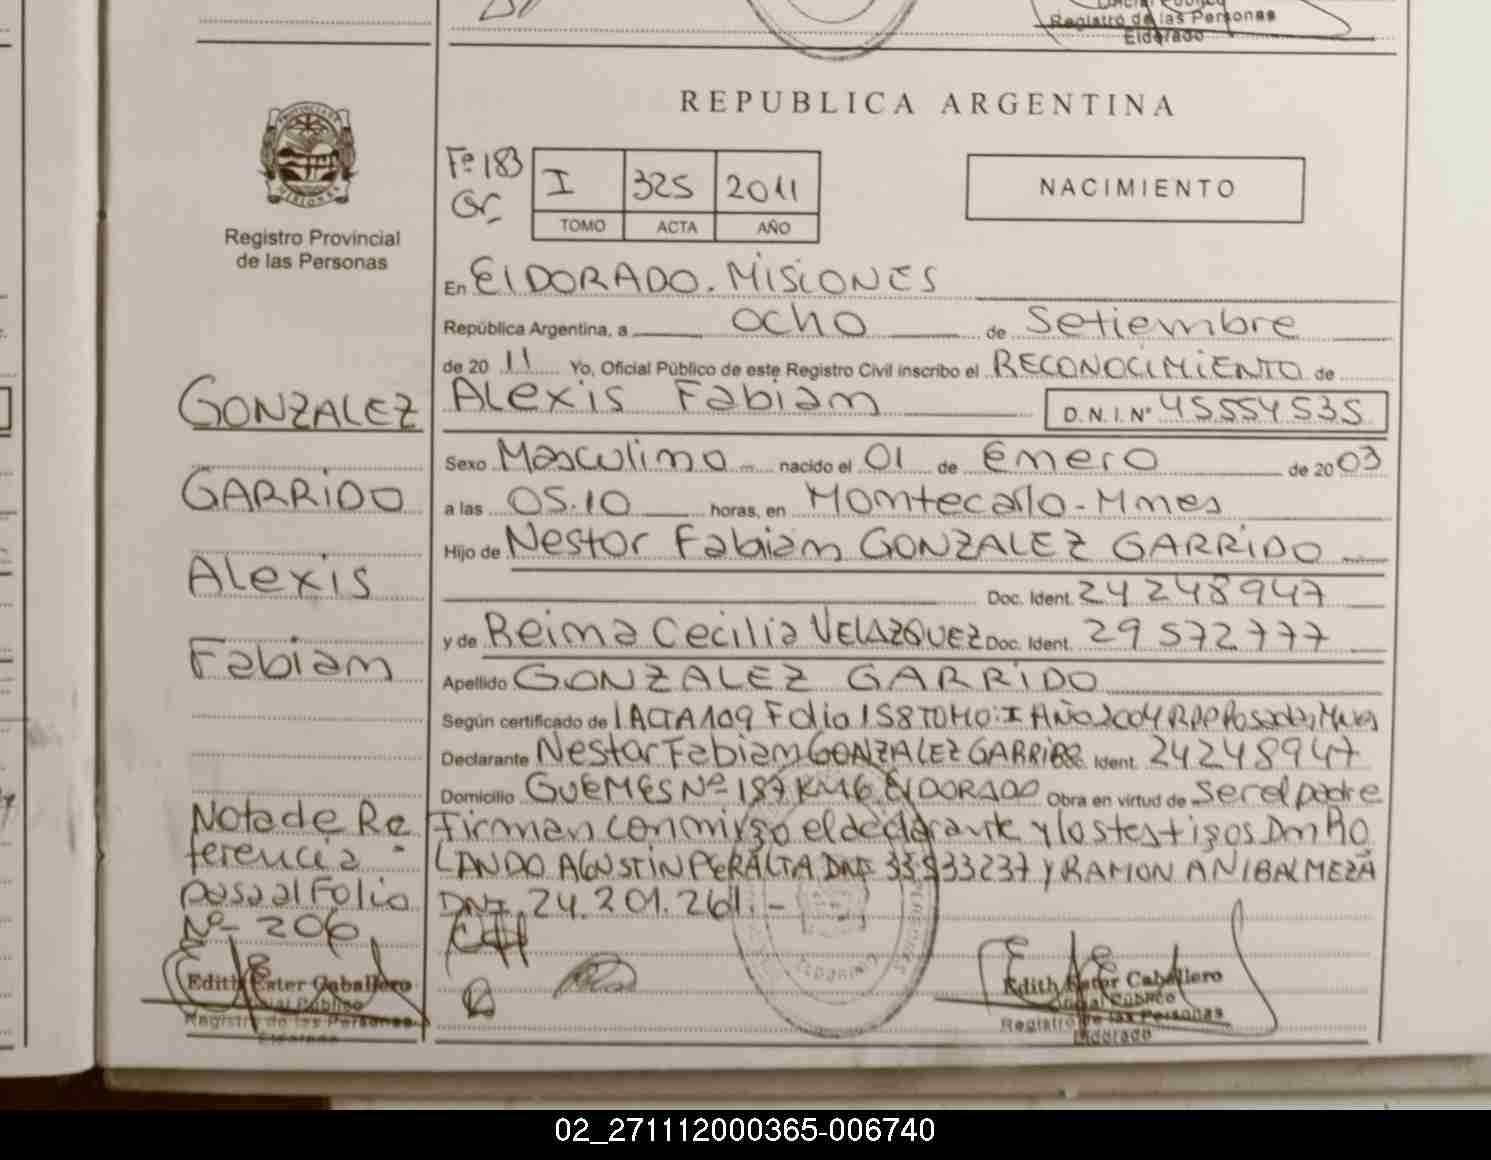 Registro de las Personas
Eldorado
REPUBLICA ARGENTINA
Fº 183
Gr.
I 325 2011
TOMO ACTA AÑO
NACIMIENTO
Registro Provincial
de las Personas
En ElDORADO. MISIONES
República Argentina, a ocho de Setiembre
de 20 11 Yo, Oficial Público de este Registro Civil inscribo el RECONOCIMIENTO de
Alexis Fabian D.N.I. Nº 45554535
Sexo Masculino nacido el 01 de Enero de 20 03
a las 05.10 horas, en Montecarlo - Mnes
Hijo de Nestor Fabian GONZALEZ GARRIDO
Doc. Ident. 24248947
y de Reina Cecilia VELAZQUEZ Doc. Ident. 29572777
Apellido GONZALEZ GARRIDO
Según certificado de 1 ACTA 109 Folio 158 TOMO: I AÑO 2004 RPP Posadas, Mnes
Declarante Nestor Fabian GONZALEZ GARRIDO Ident. 24248947
Domicilio GUEMES Nº 187 KM 6 ElDORADO Obra en virtud de ser el padre
Firman conmigo el declarante y los testigos Dn RO
LANDO AGUSTIN PERALTA DNI 33933237 Y RAMON ANIBAL MEZA
DNI 24.201.261.-
GONZALEZ
GARRIDO
Alexis
Fabian
Nota de Re
ferencia -
pasa al Folio
Nº- 206
Edith Ester Caballero
Oficial Público
Registro de las Personas
Eldorado
Edith Ester Caballero
Oficial Público
Registro de las Personas
Eldorado
02_271112000365-006740